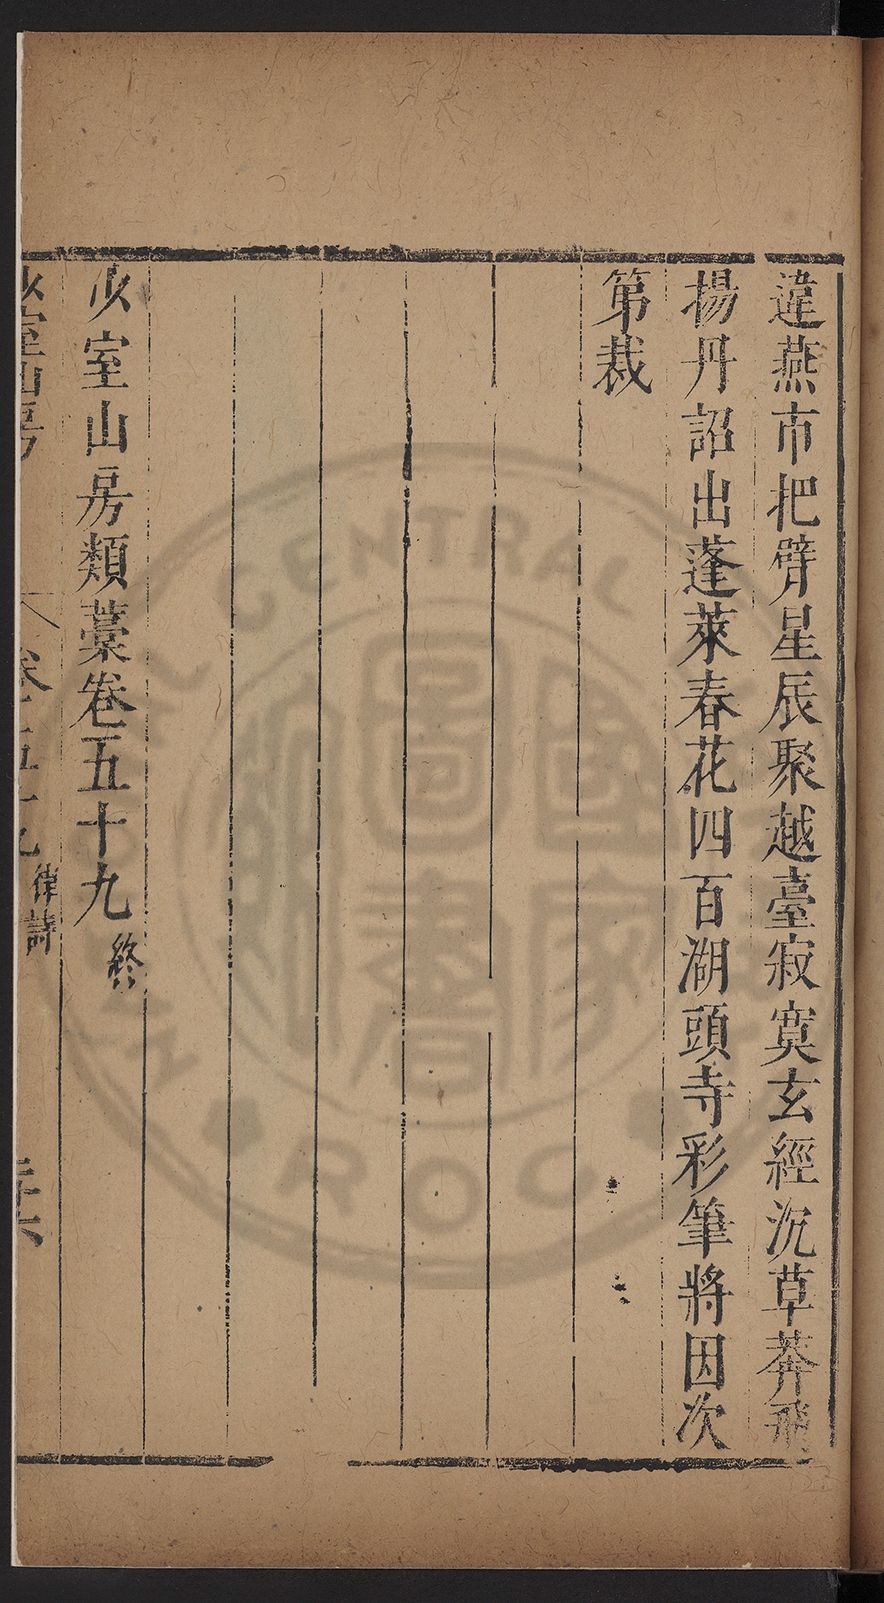 違燕市把臂星辰聚越臺寂寞玄經沉草莽飛
揚丹詔出蓬萊春花四百湖頭寺彩筆將因次
第裁
少室山房類藁卷五十九終
少室山房 卷五十九 律詩
CENTRAL
R O C